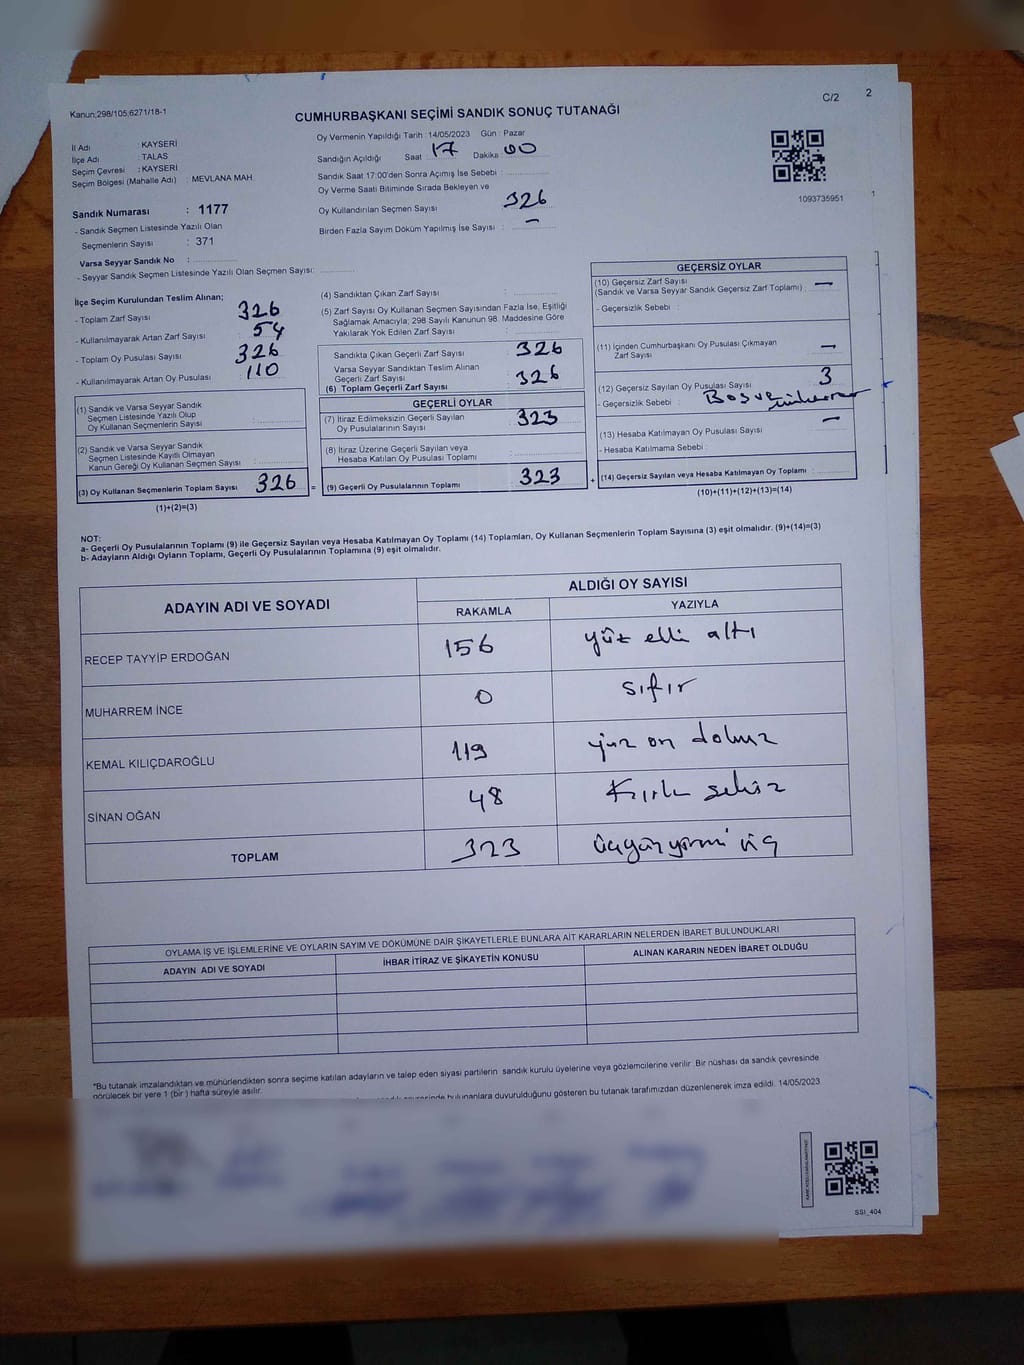 Kanun;298/105;6271/18-1
C/2
2
CUMHURBAŞKANI SEÇİMİ SANDIK SONUÇ TUTANAĞI
İl Adı : KAYSERİ
İlçe Adı : TALAS
Seçim Çevresi : KAYSERİ
Seçim Bölgesi (Mahalle Adı) : MEVLANA MAH.
Oy Vermenin Yapıldığı Tarih : 14/05/2023 Gün : Pazar
Sandığın Açıldığı Saat : 17 Dakika : 00
Sandık Saat 17:00'den Sonra Açımış İse Sebebi :
Oy Verme Saati Bitiminde Sırada Bekleyen ve
Oy Kullandırılan Seçmen Sayısı : 326
Birden Fazla Sayım Döküm Yapılmış İse Sayısı : -
1093735951
1
Sandık Numarası : 1177
- Sandık Seçmen Listesinde Yazılı Olan
Seçmenlerin Sayısı : 371
Varsa Seyyar Sandık No :
- Seyyar Sandık Seçmen Listesinde Yazılı Olan Seçmen Sayısı:
İlçe Seçim Kurulundan Teslim Alınan;
- Toplam Zarf Sayısı : 326
- Kullanılmayarak Artan Zarf Sayısı : 54
- Toplam Oy Pusulası Sayısı : 326
- Kullanılmayarak Artan Oy Pusulası : 110
(1) Sandık ve Varsa Seyyar Sandık
Seçmen Listesinde Yazılı Olup
Oy Kullanan Seçmenlerin Sayısı :
(2) Sandık ve Varsa Seyyar Sandık
Seçmen Listesinde Kayıtlı Olmayan
Kanun Gereği Oy Kullanan Seçmen Sayısı :
(3) Oy Kullanan Seçmenlerin Toplam Sayısı 326 =
(1)+(2)=(3)
(4) Sandıktan Çıkan Zarf Sayısı :
(5) Zarf Sayısı Oy Kullanan Seçmen Sayısından Fazla İse, Eşitliği
Sağlamak Amacıyla, 298 Sayılı Kanunun 98. Maddesine Göre
Yakılarak Yok Edilen Zarf Sayısı :
Sandıkta Çıkan Geçerli Zarf Sayısı : 326
Varsa Seyyar Sandıktan Teslim Alınan
Geçerli Zarf Sayısı :
(6) Toplam Geçerli Zarf Sayısı : 326
GEÇERLİ OYLAR
(7) İtiraz Edilmeksizin Geçerli Sayılan
Oy Pusulalarının Sayısı : 323
(8) İtiraz Üzerine Geçerli Sayılan veya
Hesaba Katılan Oy Pusulası Toplamı :
(9) Geçerli Oy Pusulalarının Toplamı : 323 +
GEÇERSİZ OYLAR
(10) Geçersiz Zarf Sayısı
(Sandık ve Varsa Seyyar Sandık Geçersiz Zarf Toplamı) : -
- Geçersizlik Sebebi :
(11) İçinden Cumhurbaşkanı Oy Pusulası Çıkmayan
Zarf Sayısı : -
(12) Geçersiz Sayılan Oy Pusulası Sayısı : 3
- Geçersizlik Sebebi : Boş ve
(13) Hesaba Katılmayan Oy Pusulası Sayısı : -
- Hesaba Katılmama Sebebi :
(14) Geçersiz Sayılan veya Hesaba Katılmayan Oy Toplamı :
(10)+(11)+(12)+(13)=(14)
NOT:
a- Geçerli Oy Pusulalarının Toplamı (9) ile Geçersiz Sayılan veya Hesaba Katılmayan Oy Toplamı (14) Toplamları, Oy Kullanan Seçmenlerin Toplam Sayısına (3) eşit olmalıdır. (9)+(14)=(3)
b- Adayların Aldığı Oyların Toplamı, Geçerli Oy Pusulalarının Toplamına (9) eşit olmalıdır.
ADAYIN ADI VE SOYADI
ALDIĞI OY SAYISI
RAKAMLA YAZIYLA
RECEP TAYYİP ERDOĞAN 156 yüz elli altı
MUHARREM İNCE 0 sıfır
KEMAL KILIÇDAROĞLU 119 yüz on dokuz
SİNAN OĞAN 48 Kırk sekiz
TOPLAM 323 üçyüzyirmi üç
OYLAMA İŞ VE İŞLEMLERİNE VE OYLARIN SAYIM VE DÖKÜMÜNE DAİR ŞİKAYETLERLE BUNLARA AİT KARARLARIN NELERDEN İBARET BULUNDUKLARI
ADAYIN ADI VE SOYADI İHBAR İTİRAZ VE ŞİKAYETİN KONUSU ALINAN KARARIN NEDEN İBARET OLDUĞU
*Bu tutanak imzalandıktan ve mühürlendikten sonra seçime katılan adayların ve talep eden siyasi partilerin sandık kurulu üyelerine veya gözlemcilerine verilir. Bir nüshası da sandık çevresinde
görülecek bir yere 1 (bir) hafta süreyle asılır.
bulunanlara duyurulduğunu gösteren bu tutanak tarafımızdan düzenlenerek imza edildi. 14/05/2023
SSI_404